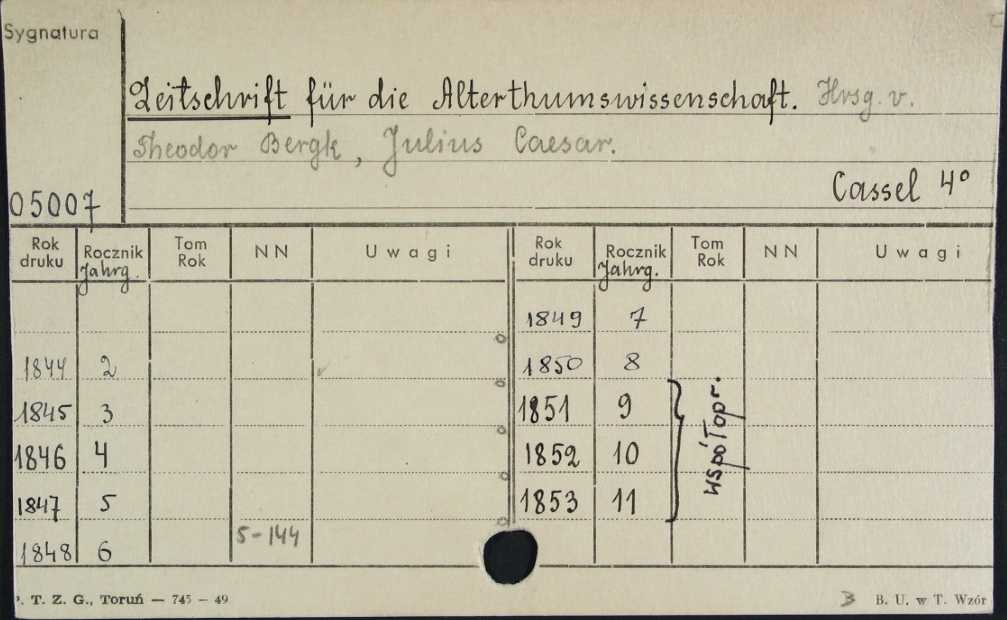 Sygnatura
Zeitschrift für die Alterthumswissenschaft. Hrsg. v.
Theodor Bergk, Julius Caesar.
Cassel 4°
05007
Rok druku Rocznik Jahrg. Tom Rok NN Uwagi Rok druku Rocznik Jahrg. Tom Rok NN Uwagi
1849 7
1844 2 1850 8
1845 3 1851 9
1846 4 1852 10
1847 5 1853 11
współopr.
1848 6 5-144
P. T. Z. G., Toruń — 745 — 49 B B. U. w T. Wzór